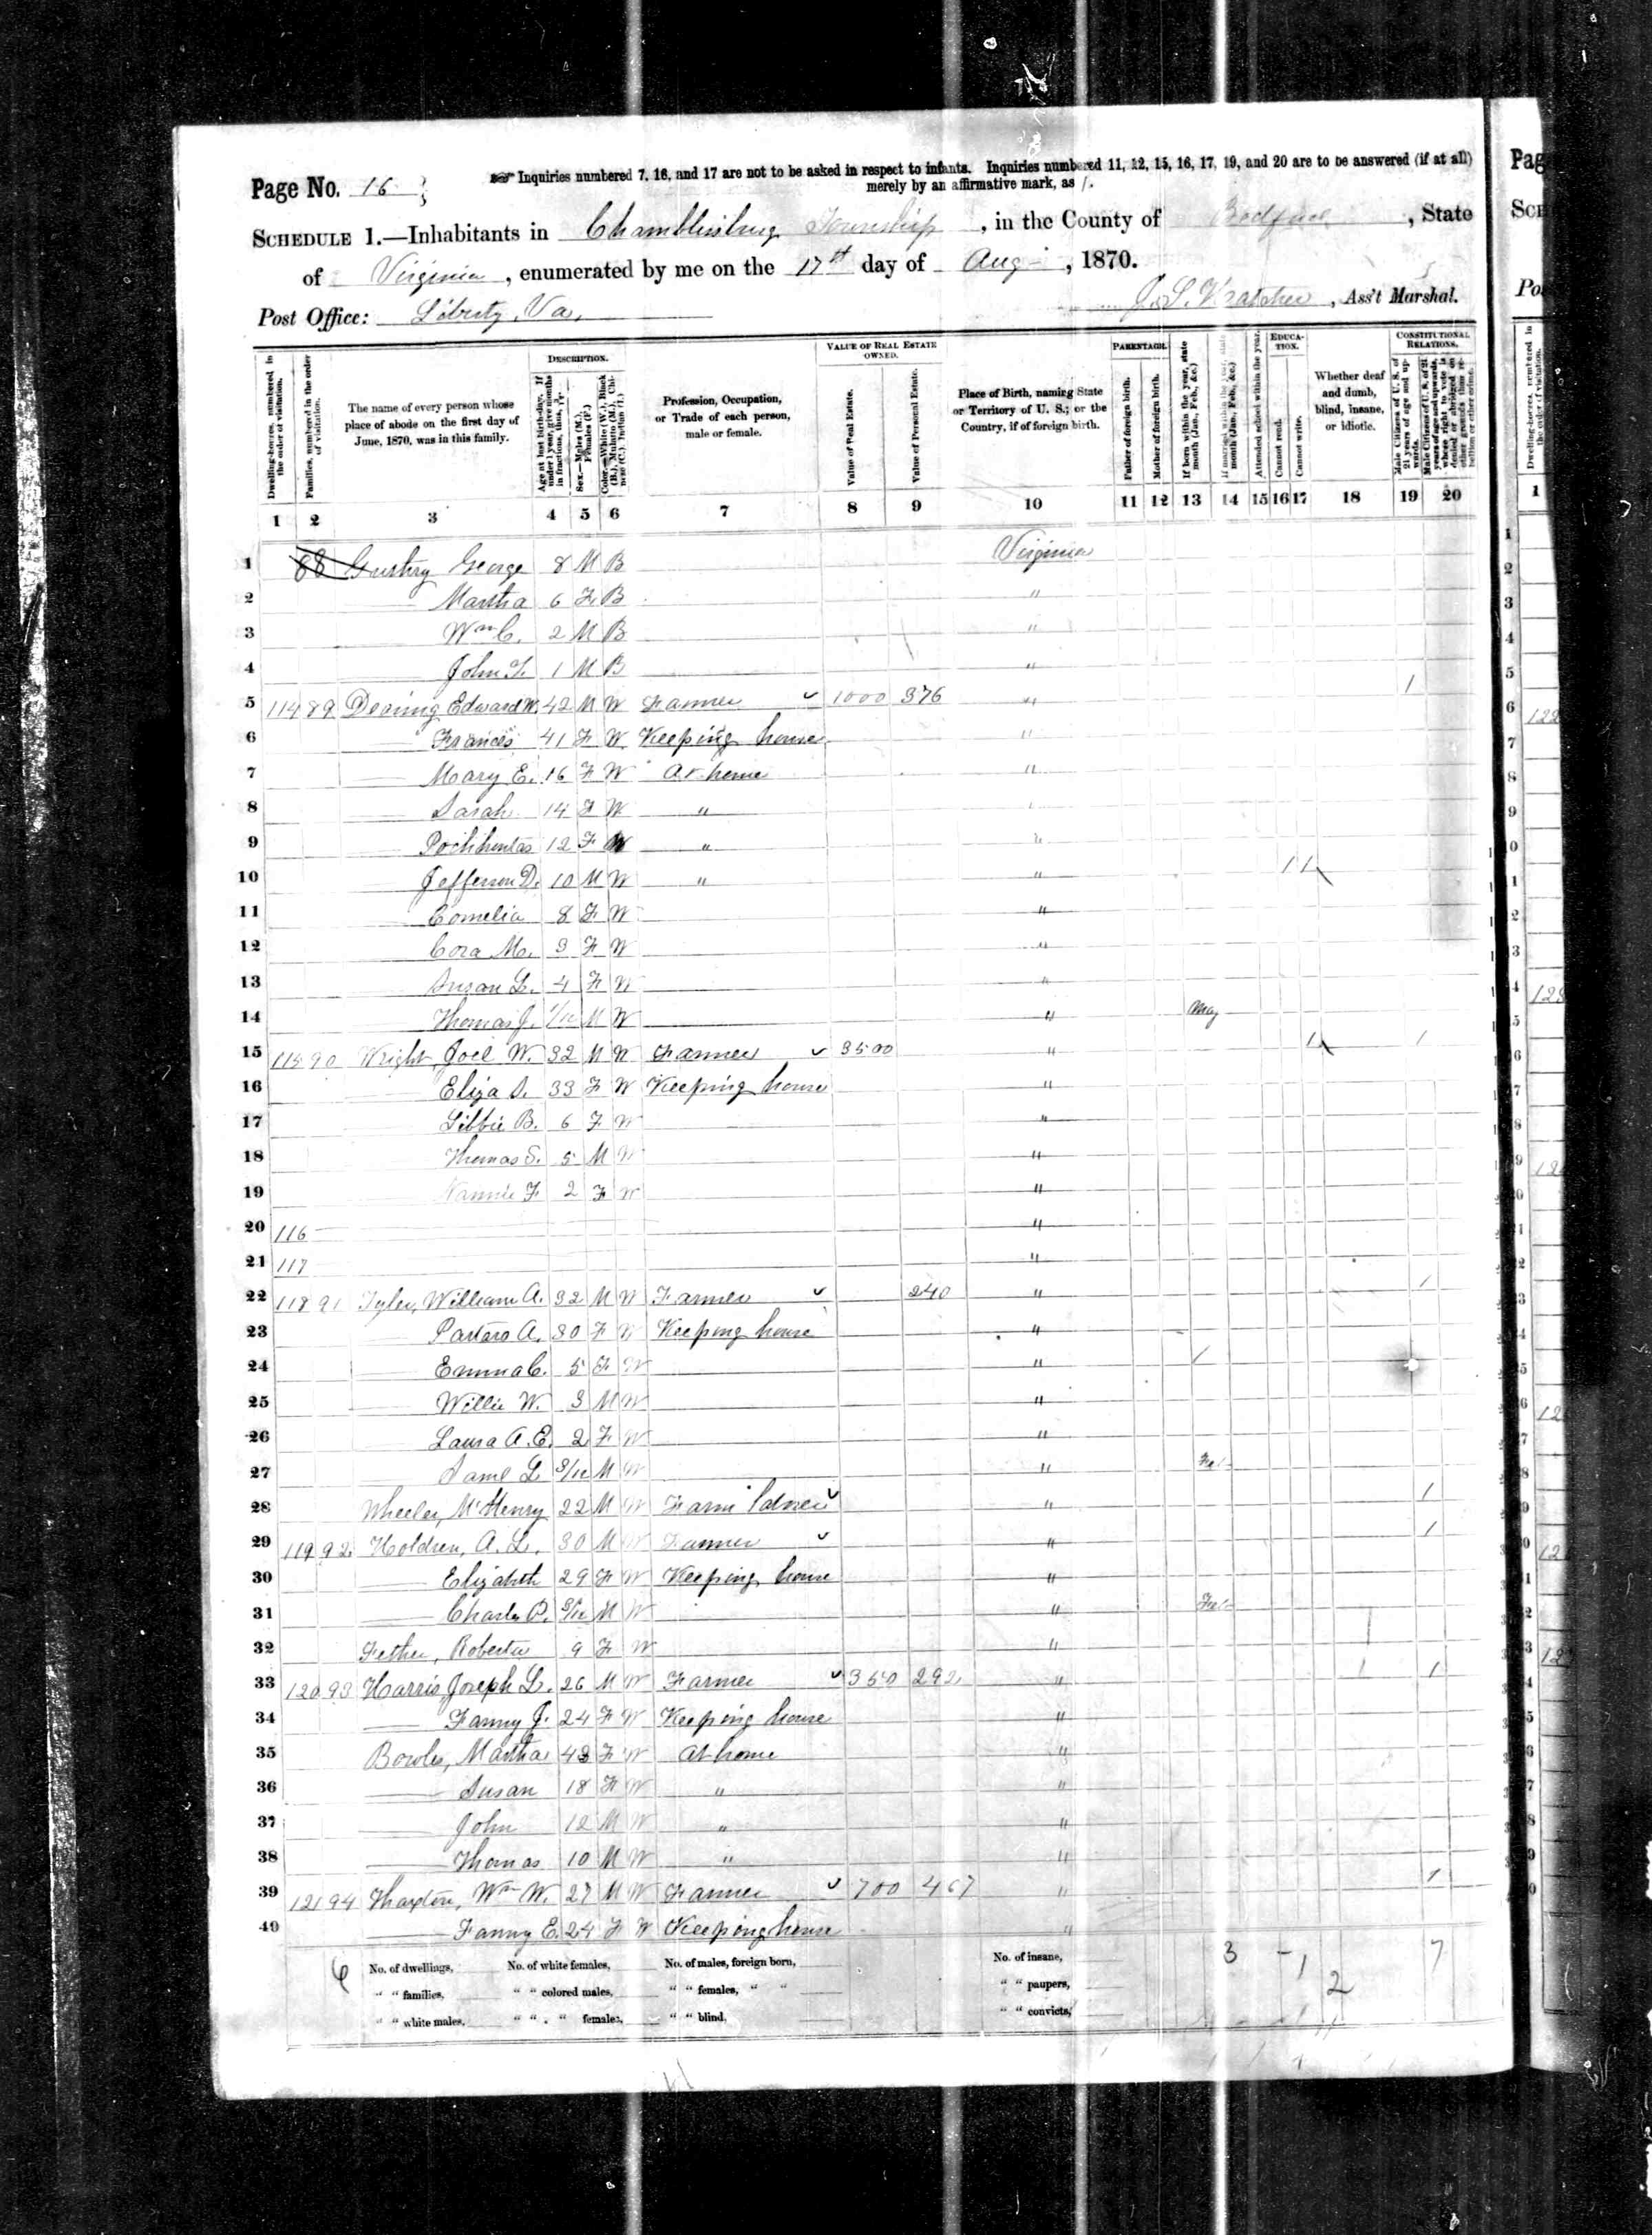 Page No. 16
Inquiries numbered 7, 16, and 17 are not to be asked in respect to infants. Inquiries numbered 11, 12, 15, 16, 17, 19, and 20 are to be answered (if at all)
merely by an affirmative mark, as /.
SCHEDULE 1.—Inhabitants in Chamblissburg Township, in the County of Bedford, State
of Virginia, enumerated by me on the 17th day of Aug, 1870.
Post Office: Liberty, Va.
J. S., Ass't Marshal.
Dwelling-houses, numbered in the order of visitation.
Families, numbered in the order of visitation.
The name of every person whose place of abode on the first day of June, 1870, was in this family.
DESCRIPTION.
Age at last birth-day. If under 1 year, give months in fractions, thus,
Sex.—Males (M.), Females (F.)
Color.—White (W.), Black (B.), Mulatto (M.), Chinese (C.), Indian (I.)
Profession, Occupation, or Trade of each person, male or female.
VALUE OF REAL ESTATE OWNED.
Value of Real Estate.
Value of Personal Estate.
Place of Birth, naming State or Territory of U. S.; or the Country, if of foreign birth.
PARENTAGE.
Father of foreign birth.
Mother of foreign birth.
If born within the year, state month (Jan., Feb., &c.)
If married within the year, state month (Jan., Feb., &c.)
Attended school within the year.
EDUCATION.
Cannot read.
Cannot write.
Whether deaf and dumb, blind, insane, or idiotic.
CONSTITUTIONAL RELATIONS.
Male Citizens of U. S. of 21 years of age and upwards.
Male Citizens of U. S. of 21 years of age and upwards, whose right to vote is denied or abridged on other grounds than rebellion or other crime.
1 2 3 4 5 6 7 8 9 10 11 12 13 14 15 16 17 18 19 20
1 88 George 8 M B Virginia
2 Martha 6 F B "
3 Wm C. 2 M B "
4 John F. 1 M B "
5 114 89 Dearing Edward W. 42 M W Farmer 1000 376 " 1
6 Frances 41 F W Keeping house "
7 Mary E. 16 F W At home "
8 Sarah 14 F W " "
9 Pochihontas 12 F W " "
10 Jefferson D. 10 M W " " 1 1
11 Cornelia 8 F W "
12 Cora M. 3 F W "
13 Susan L. 4 F W "
14 Thomas J. 1/12 M W " May
15 115 90 Wright, Joel W. 32 M W Farmer 3500 " 1 1
16 Eliza S. 33 F W Keeping house "
17 Libbie B. 6 F W "
18 Thomas S. 5 M W "
19 Nannie F 2 F W "
20 116 "
21 117 "
22 118 91 Tyler, William A. 32 M W Farmer 240 " 1
23 A. 30 F W Keeping house "
24 Emma C. 5 F W " /
25 Willie W. 3 M W "
26 Laura A. E. 2 F W "
27 Saml L. 3/12 M W " Feb
28 Wheeler, McHenry 22 M W Farm " 1
29 119 92 Holdren, A. L. 30 M W Farmer " 1
30 Elizabeth 29 F W Keeping house "
31 Charles P. 3/12 M W " Feb
32 Roberta 9 F W "
33 120 93 Harris, Joseph L. 26 M W Farmer 350 292 " 1 1
34 Fanny J. 24 F W Keeping house "
35 Bowles, Martha 43 F W At home "
36 Susan 18 F W " "
37 John 12 M W " "
38 Thomas 10 M W " "
39 121 94 Thaxton, Wm W. 27 M W Farmer 700 467 " 1
40 Fanny E. 24 F W Keeping house "
6 No. of dwellings, No. of white females, No. of males, foreign born, No. of insane, 3 - 1 2 7
" " families, " " colored males, " " females, " " " " paupers,
" " white males, " " " females, " " blind, " " convicts,